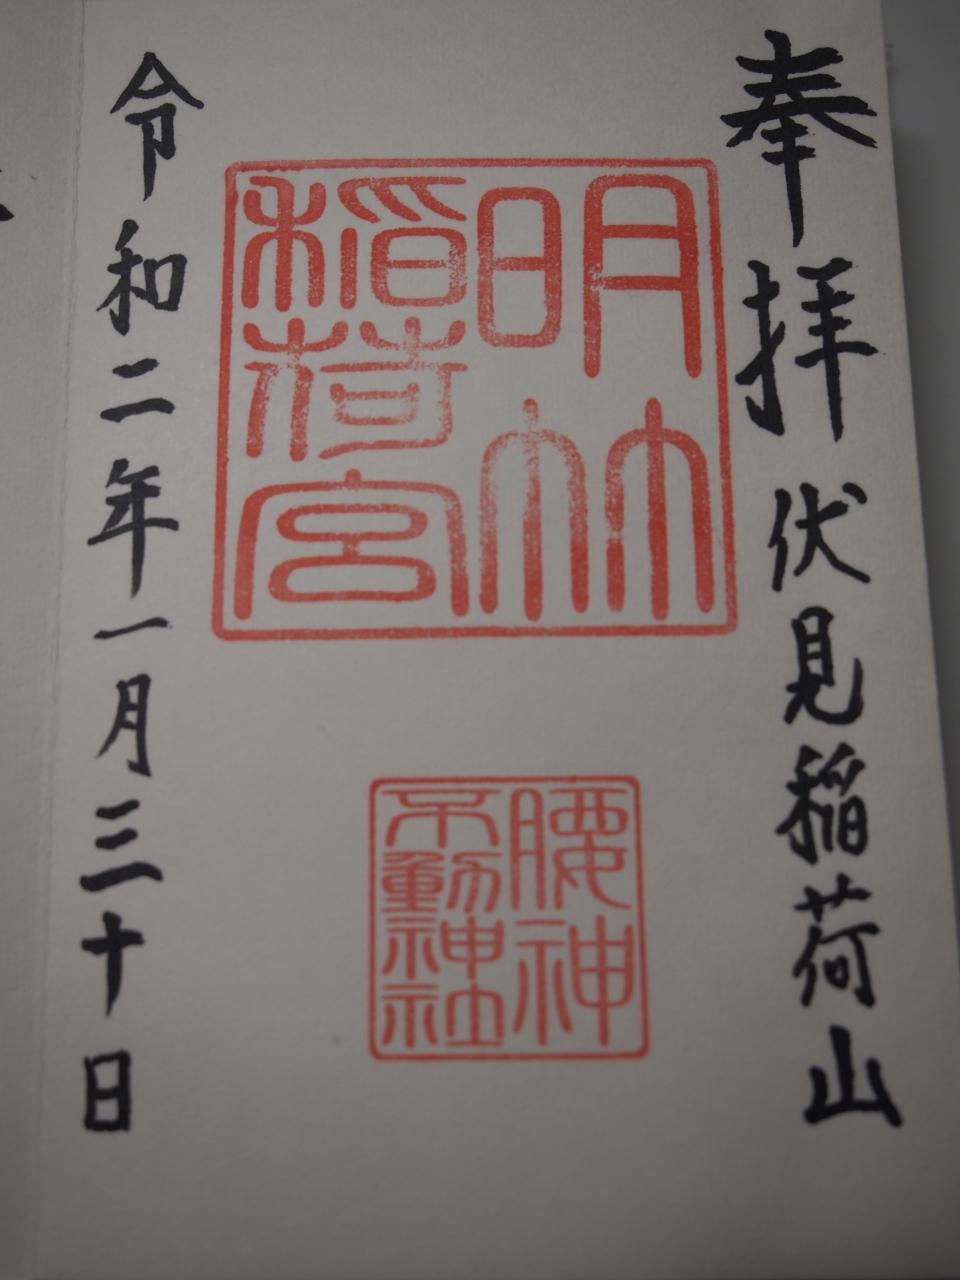 奉拝 伏見稲荷山
明竹
稲荷宮
腰神
不動神社
令和二年一月三十日